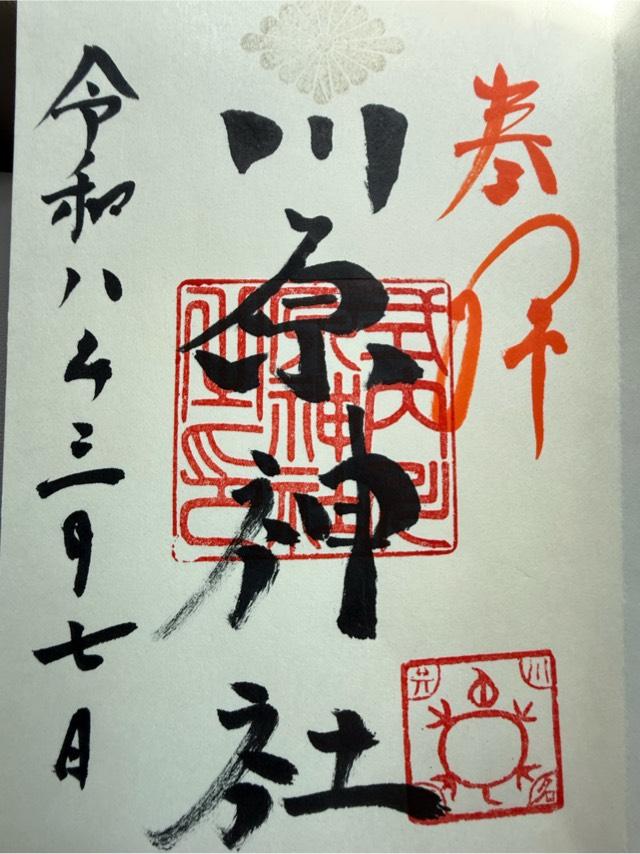 奉拝
川原神社
令和八年三月七日
式内川原神社之印
川
名